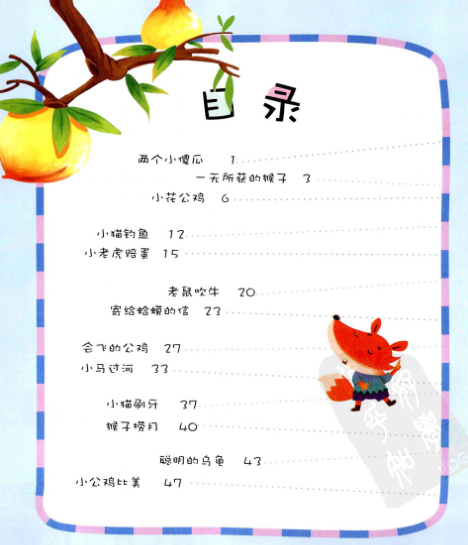 目录
两个小傻瓜 1
一无所获的猴子 3
小花公鸡 6
小猫钓鱼 12
小老虎赔蛋 15
老鼠吹牛 20
寄给蛤蟆的信 23
会飞的公鸡 27
小马过河 33
小猫刷牙 37
猴子捞月 40
聪明的乌龟 43
小公鸡比美 47